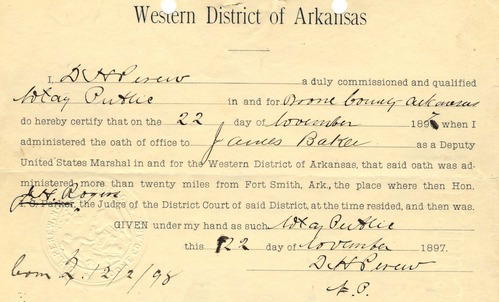 Western District of Arkansas
I, D H Perew a duly commissioned and qualified
Notay Public in and for Boone County Arkansas
do hereby certify that on the 22 day of November 1897 when I
administered the oath of office to James Baker as a Deputy
United States Marshal in and for the Western District of Arkansas, that said oath was
administered more than twenty miles from Fort Smith, Ark., the place where then Hon.
J. H. Rogers
I. C. Parker, the Judge of the District Court of said District, at the time resided, and then was.
GIVEN under my hand as such Notay Public
this 22 day of November 1897.
D H Perew
N. P.
com 2/2/98